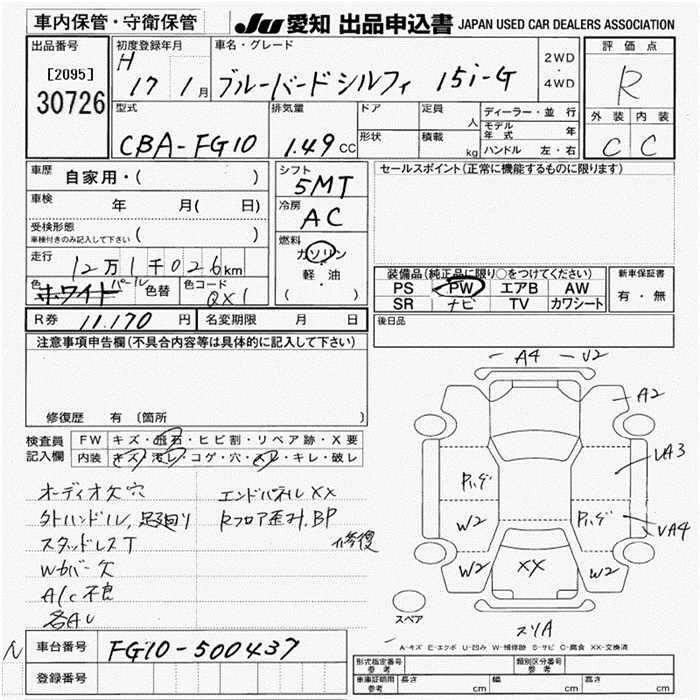 車内保管・守衛保管
JU 愛知 出品申込書 JAPAN USED CAR DEALERS ASSOCIATION
出品番号
[2095]
30726
初度登録年月
H 17 1月
車名・グレード
ブルーバードシルフィ 15i-G
2WD
・
4WD
評価点
R
外装 内装
C C
型式
CBA-FG10
排気量
1.49 CC
ドア
形状
定員 人
積載 kg
ディーラー・並行
モデル年式 年
ハンドル 左・右
車歴 自家用・( )
車検 年 月( 日)
受検形態
車検付きのみ記入して下さい ( )
走行 12万1千026km
色 ホワイト パール 色替 色コード QX1
シフト
5MT
冷房
AC
燃料
ガソリン
・
軽・油
( )
セールスポイント(正常に機能するものに限ります)
装備品(純正品に限り〇をつけてください)
PS PW エアB AW
SR ナビ TV カワシート
新車保証書
有・無
R券 11,170 円 名変期限 月 日
後日品
注意事項申告欄(不具合内容等は具体的に記入して下さい)
修復歴 有 〔箇所 〕
検査員記入欄
FW キズ・飛石・ヒビ割・リペア跡・X要
内装 キズ・汚レ・コゲ・穴・スレ・キレ・破レ
オーディオ欠穴
外ハンドル,足廻り
スタッドレスT
Wカバー欠
A/C不良
各AU
エンドパネルXX
Rフロア歪み,BP
修復
A4 U2
A2
UA3
UA4
W2
W2
W2
XX
スペア
スリA
A-キズ E-エクボ U-凹み W-補修跡 S-サビ C-腐食 XX-交換済
N
車台番号 FG10-500437
登録番号
形式指定番号 参考
類別区分番号 参考
車庫証明用 参考 長さ cm 幅 cm 高さ cm